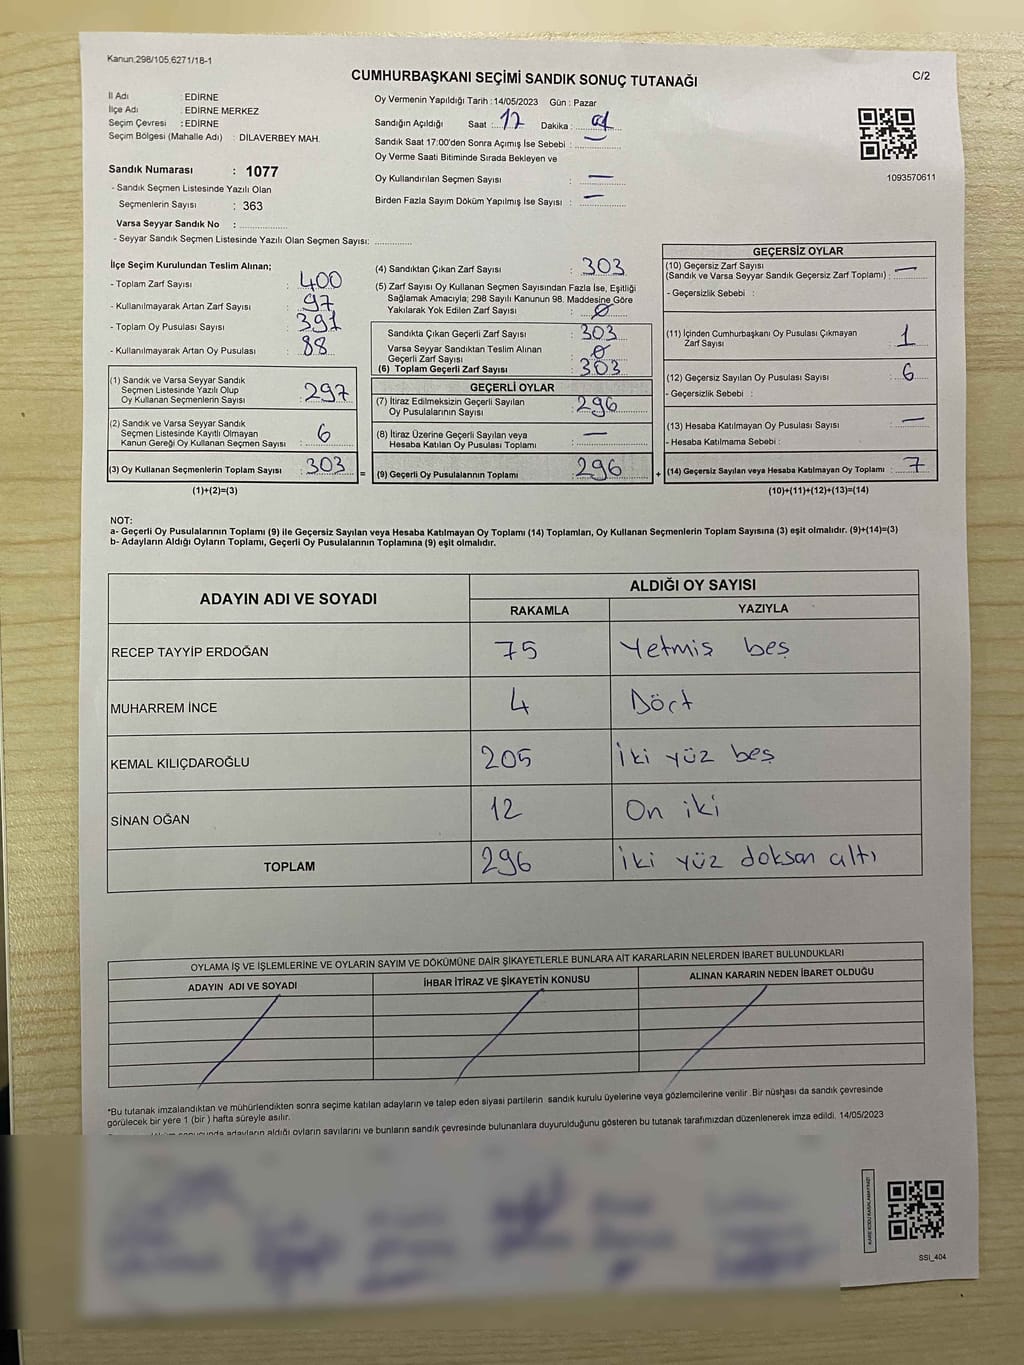 Kanun.298/105,6271/18-1
C/2
CUMHURBAŞKANI SEÇİMİ SANDIK SONUÇ TUTANAĞI
İl Adı : EDİRNE
İlçe Adı : EDİRNE MERKEZ
Seçim Çevresi : EDİRNE
Seçim Bölgesi (Mahalle Adı) : DİLAVERBEY MAH.
Sandık Numarası : 1077
- Sandık Seçmen Listesinde Yazılı Olan
Seçmenlerin Sayısı : 363
Varsa Seyyar Sandık No :
- Seyyar Sandık Seçmen Listesinde Yazılı Olan Seçmen Sayısı:
Oy Vermenin Yapıldığı Tarih : 14/05/2023 Gün : Pazar
Sandığın Açıldığı Saat : 17 Dakika : 01
Sandık Saat 17:00'den Sonra Açımış İse Sebebi :
Oy Verme Saati Bitiminde Sırada Bekleyen ve
Oy Kullandırılan Seçmen Sayısı : —
Birden Fazla Sayım Döküm Yapılmış İse Sayısı : —
1093570611
İlçe Seçim Kurulundan Teslim Alınan;
- Toplam Zarf Sayısı : 400
- Kullanılmayarak Artan Zarf Sayısı : 97
- Toplam Oy Pusulası Sayısı : 391
- Kullanılmayarak Artan Oy Pusulası : 88
(1) Sandık ve Varsa Seyyar Sandık
Seçmen Listesinde Yazılı Olup
Oy Kullanan Seçmenlerin Sayısı : 297
(2) Sandık ve Varsa Seyyar Sandık
Seçmen Listesinde Kayıtlı Olmayan
Kanun Gereği Oy Kullanan Seçmen Sayısı : 6
(3) Oy Kullanan Seçmenlerin Toplam Sayısı : 303
(1)+(2)=(3)
=
(4) Sandıktan Çıkan Zarf Sayısı : 303
(5) Zarf Sayısı Oy Kullanan Seçmen Sayısından Fazla İse, Eşitliği
Sağlamak Amacıyla; 298 Sayılı Kanunun 98. Maddesine Göre
Yakılarak Yok Edilen Zarf Sayısı : 0
Sandıkta Çıkan Geçerli Zarf Sayısı : 303
Varsa Seyyar Sandıktan Teslim Alınan
Geçerli Zarf Sayısı : 0
(6) Toplam Geçerli Zarf Sayısı : 303
GEÇERLİ OYLAR
(7) İtiraz Edilmeksizin Geçerli Sayılan
Oy Pusulalarının Sayısı : 296
(8) İtiraz Üzerine Geçerli Sayılan veya
Hesaba Katılan Oy Pusulası Toplamı : —
(9) Geçerli Oy Pusulalarının Toplamı : 296
+
GEÇERSİZ OYLAR
(10) Geçersiz Zarf Sayısı
(Sandık ve Varsa Seyyar Sandık Geçersiz Zarf Toplamı) : —
- Geçersizlik Sebebi :
(11) İçinden Cumhurbaşkanı Oy Pusulası Çıkmayan
Zarf Sayısı : 1
(12) Geçersiz Sayılan Oy Pusulası Sayısı : 6
- Geçersizlik Sebebi :
(13) Hesaba Katılmayan Oy Pusulası Sayısı : —
- Hesaba Katılmama Sebebi :
(14) Geçersiz Sayılan veya Hesaba Katılmayan Oy Toplamı : 7
(10)+(11)+(12)+(13)=(14)
NOT:
a- Geçerli Oy Pusulalarının Toplamı (9) ile Geçersiz Sayılan veya Hesaba Katılmayan Oy Toplamı (14) Toplamları, Oy Kullanan Seçmenlerin Toplam Sayısına (3) eşit olmalıdır. (9)+(14)=(3)
b- Adayların Aldığı Oyların Toplamı, Geçerli Oy Pusulalarının Toplamına (9) eşit olmalıdır.
ADAYIN ADI VE SOYADI ALDIĞI OY SAYISI
RAKAMLA YAZIYLA
RECEP TAYYİP ERDOĞAN 75 Yetmiş beş
MUHARREM İNCE 4 Dört
KEMAL KILIÇDAROĞLU 205 İki yüz beş
SİNAN OĞAN 12 On iki
TOPLAM 296 İki yüz doksan altı
OYLAMA İŞ VE İŞLEMLERİNE VE OYLARIN SAYIM VE DÖKÜMÜNE DAİR ŞİKAYETLERLE BUNLARA AİT KARARLARIN NELERDEN İBARET BULUNDUKLARI
ADAYIN ADI VE SOYADI İHBAR İTİRAZ VE ŞİKAYETİN KONUSU ALINAN KARARIN NEDEN İBARET OLDUĞU
*Bu tutanak imzalandıktan ve mühürlendikten sonra seçime katılan adayların ve talep eden siyasi partilerin sandık kurulu üyelerine veya gözlemcilerine verilir .Bir nüshası da sandık çevresinde
görülecek bir yere 1 (bir ) hafta süreyle asılır.
adayların aldığı oyların sayılarını ve bunların sandık çevresinde bulunanlara duyurulduğunu gösteren bu tutanak tarafımızdan düzenlenerek imza edildi. 14/05/2023
SSI_404